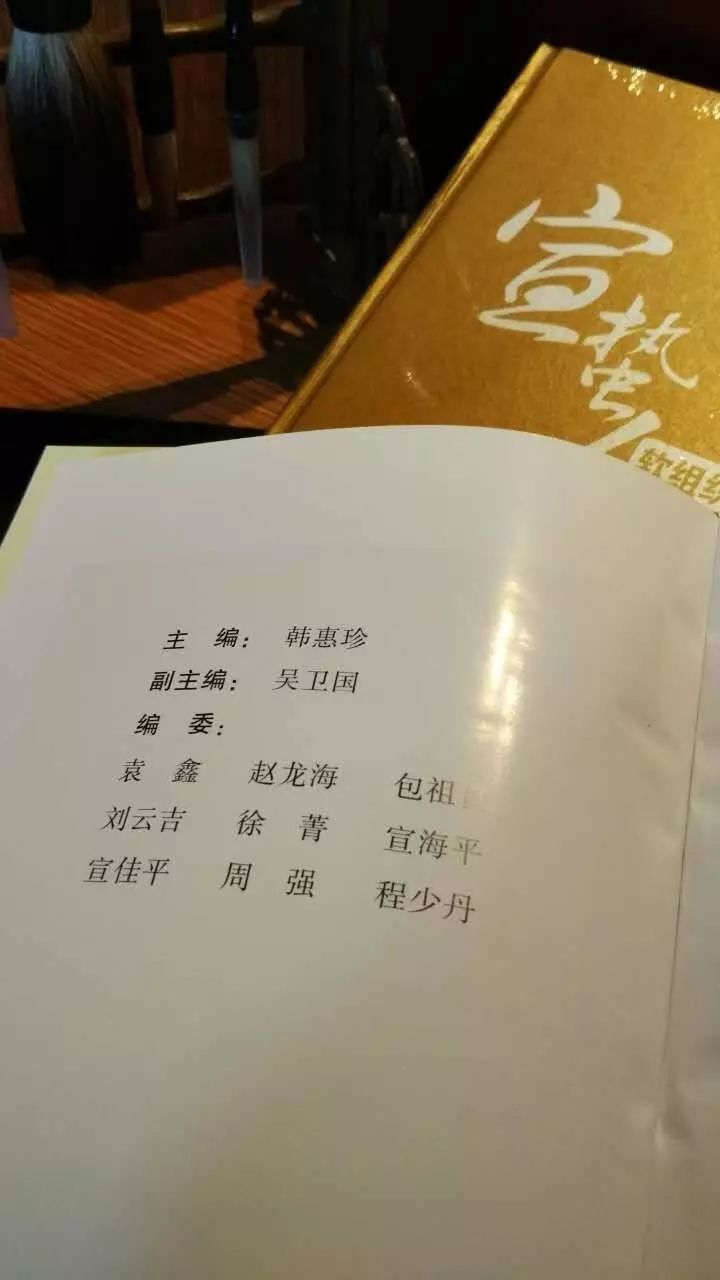 宣蛰人
软组织
主 编： 韩惠珍
副主编： 吴卫国
编 委：
袁 鑫 赵龙海 包祖
刘云吉 徐 菁 宣海平
宣佳平 周 强 程少丹